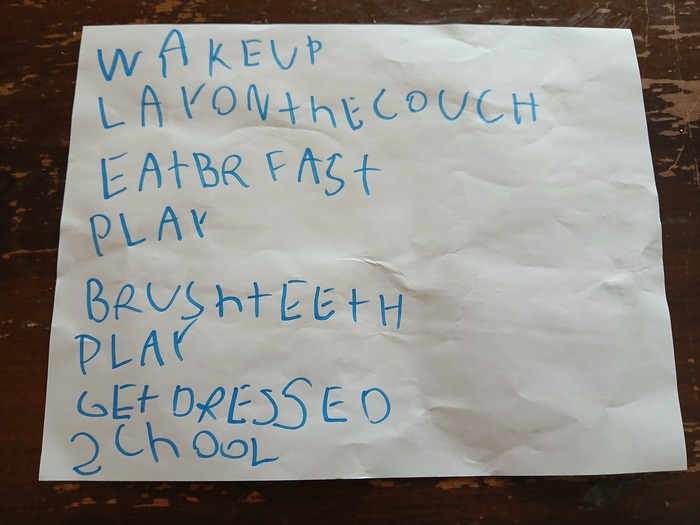 WAKEUP
LAYONthECOUCH
EAtBR FASt
PLAY
BRUShtEEtH
PLAY
GEt DRESSED
SChOOL